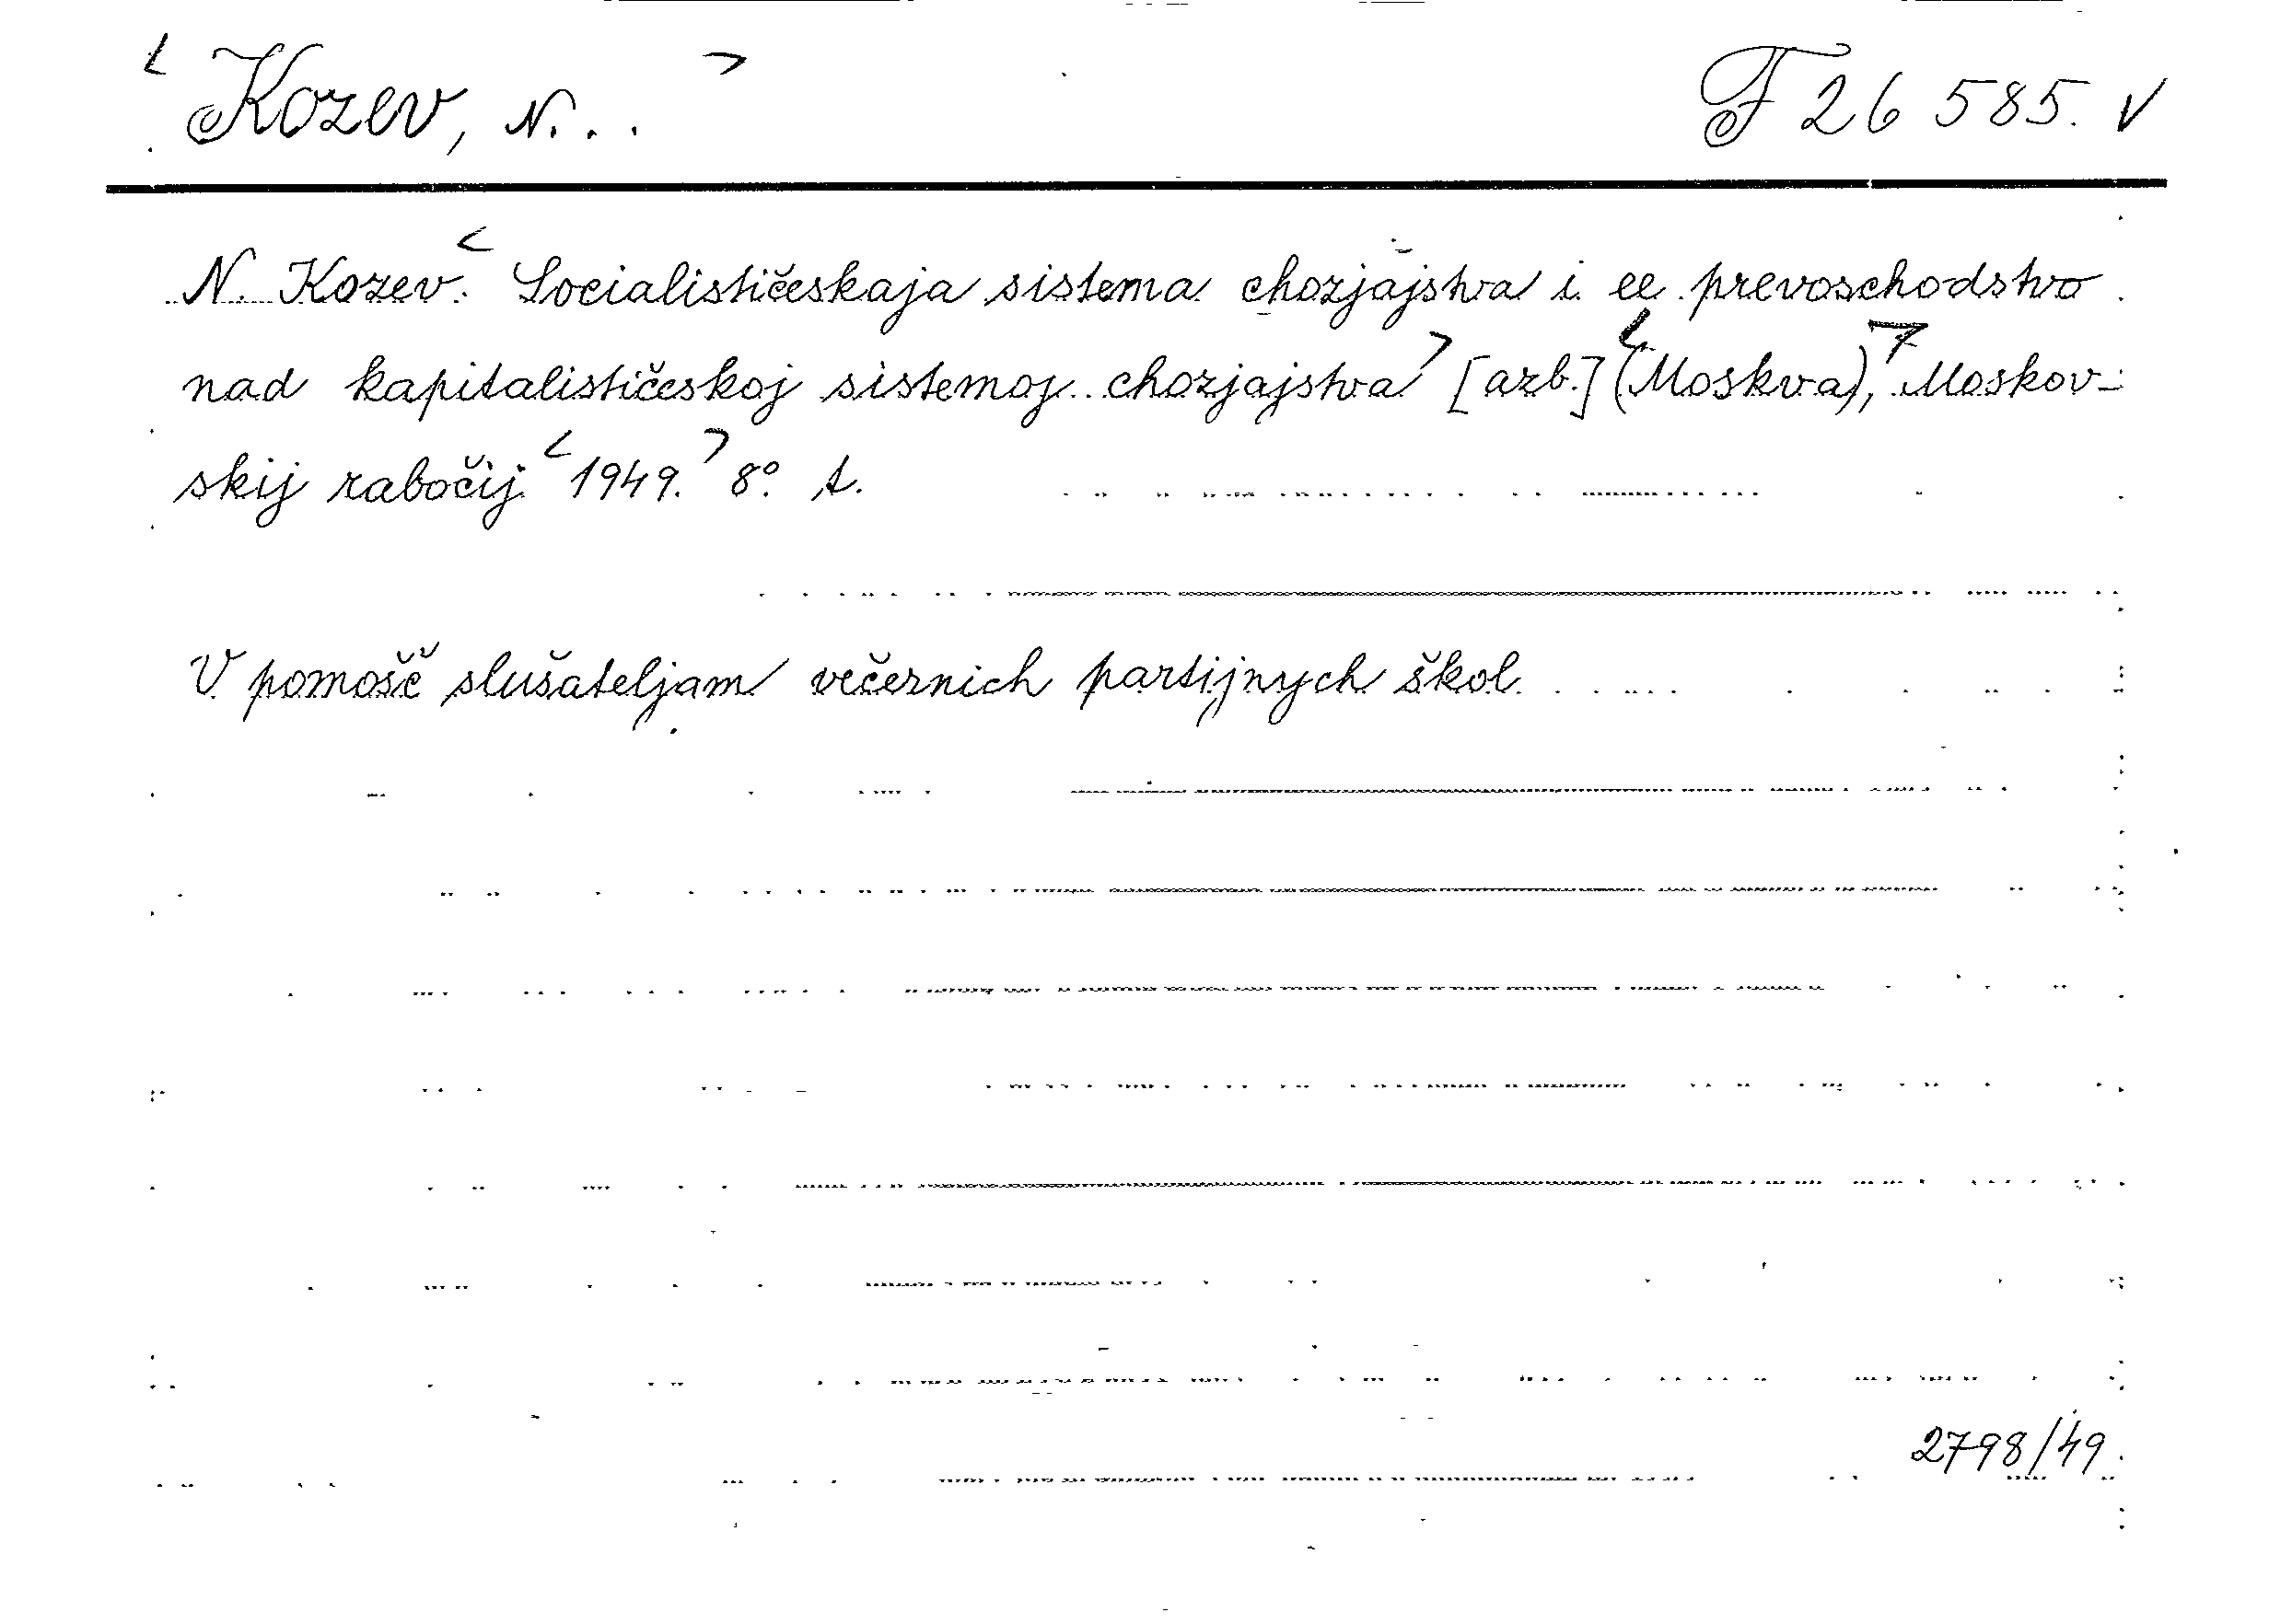 < Kozev, N... > F 26 585. V
N. Kozev. < Socialističeskaja sistema chozjajstva i ee prevoschodstvo
nad kapitalističeskoj sistemoj chozjajstva > [azb.] < (Moskva), > Moskov-
skij rabočij < 1949. > 8° t.
V pomošč slušateljam večernich partijnych škol.
2798/49.